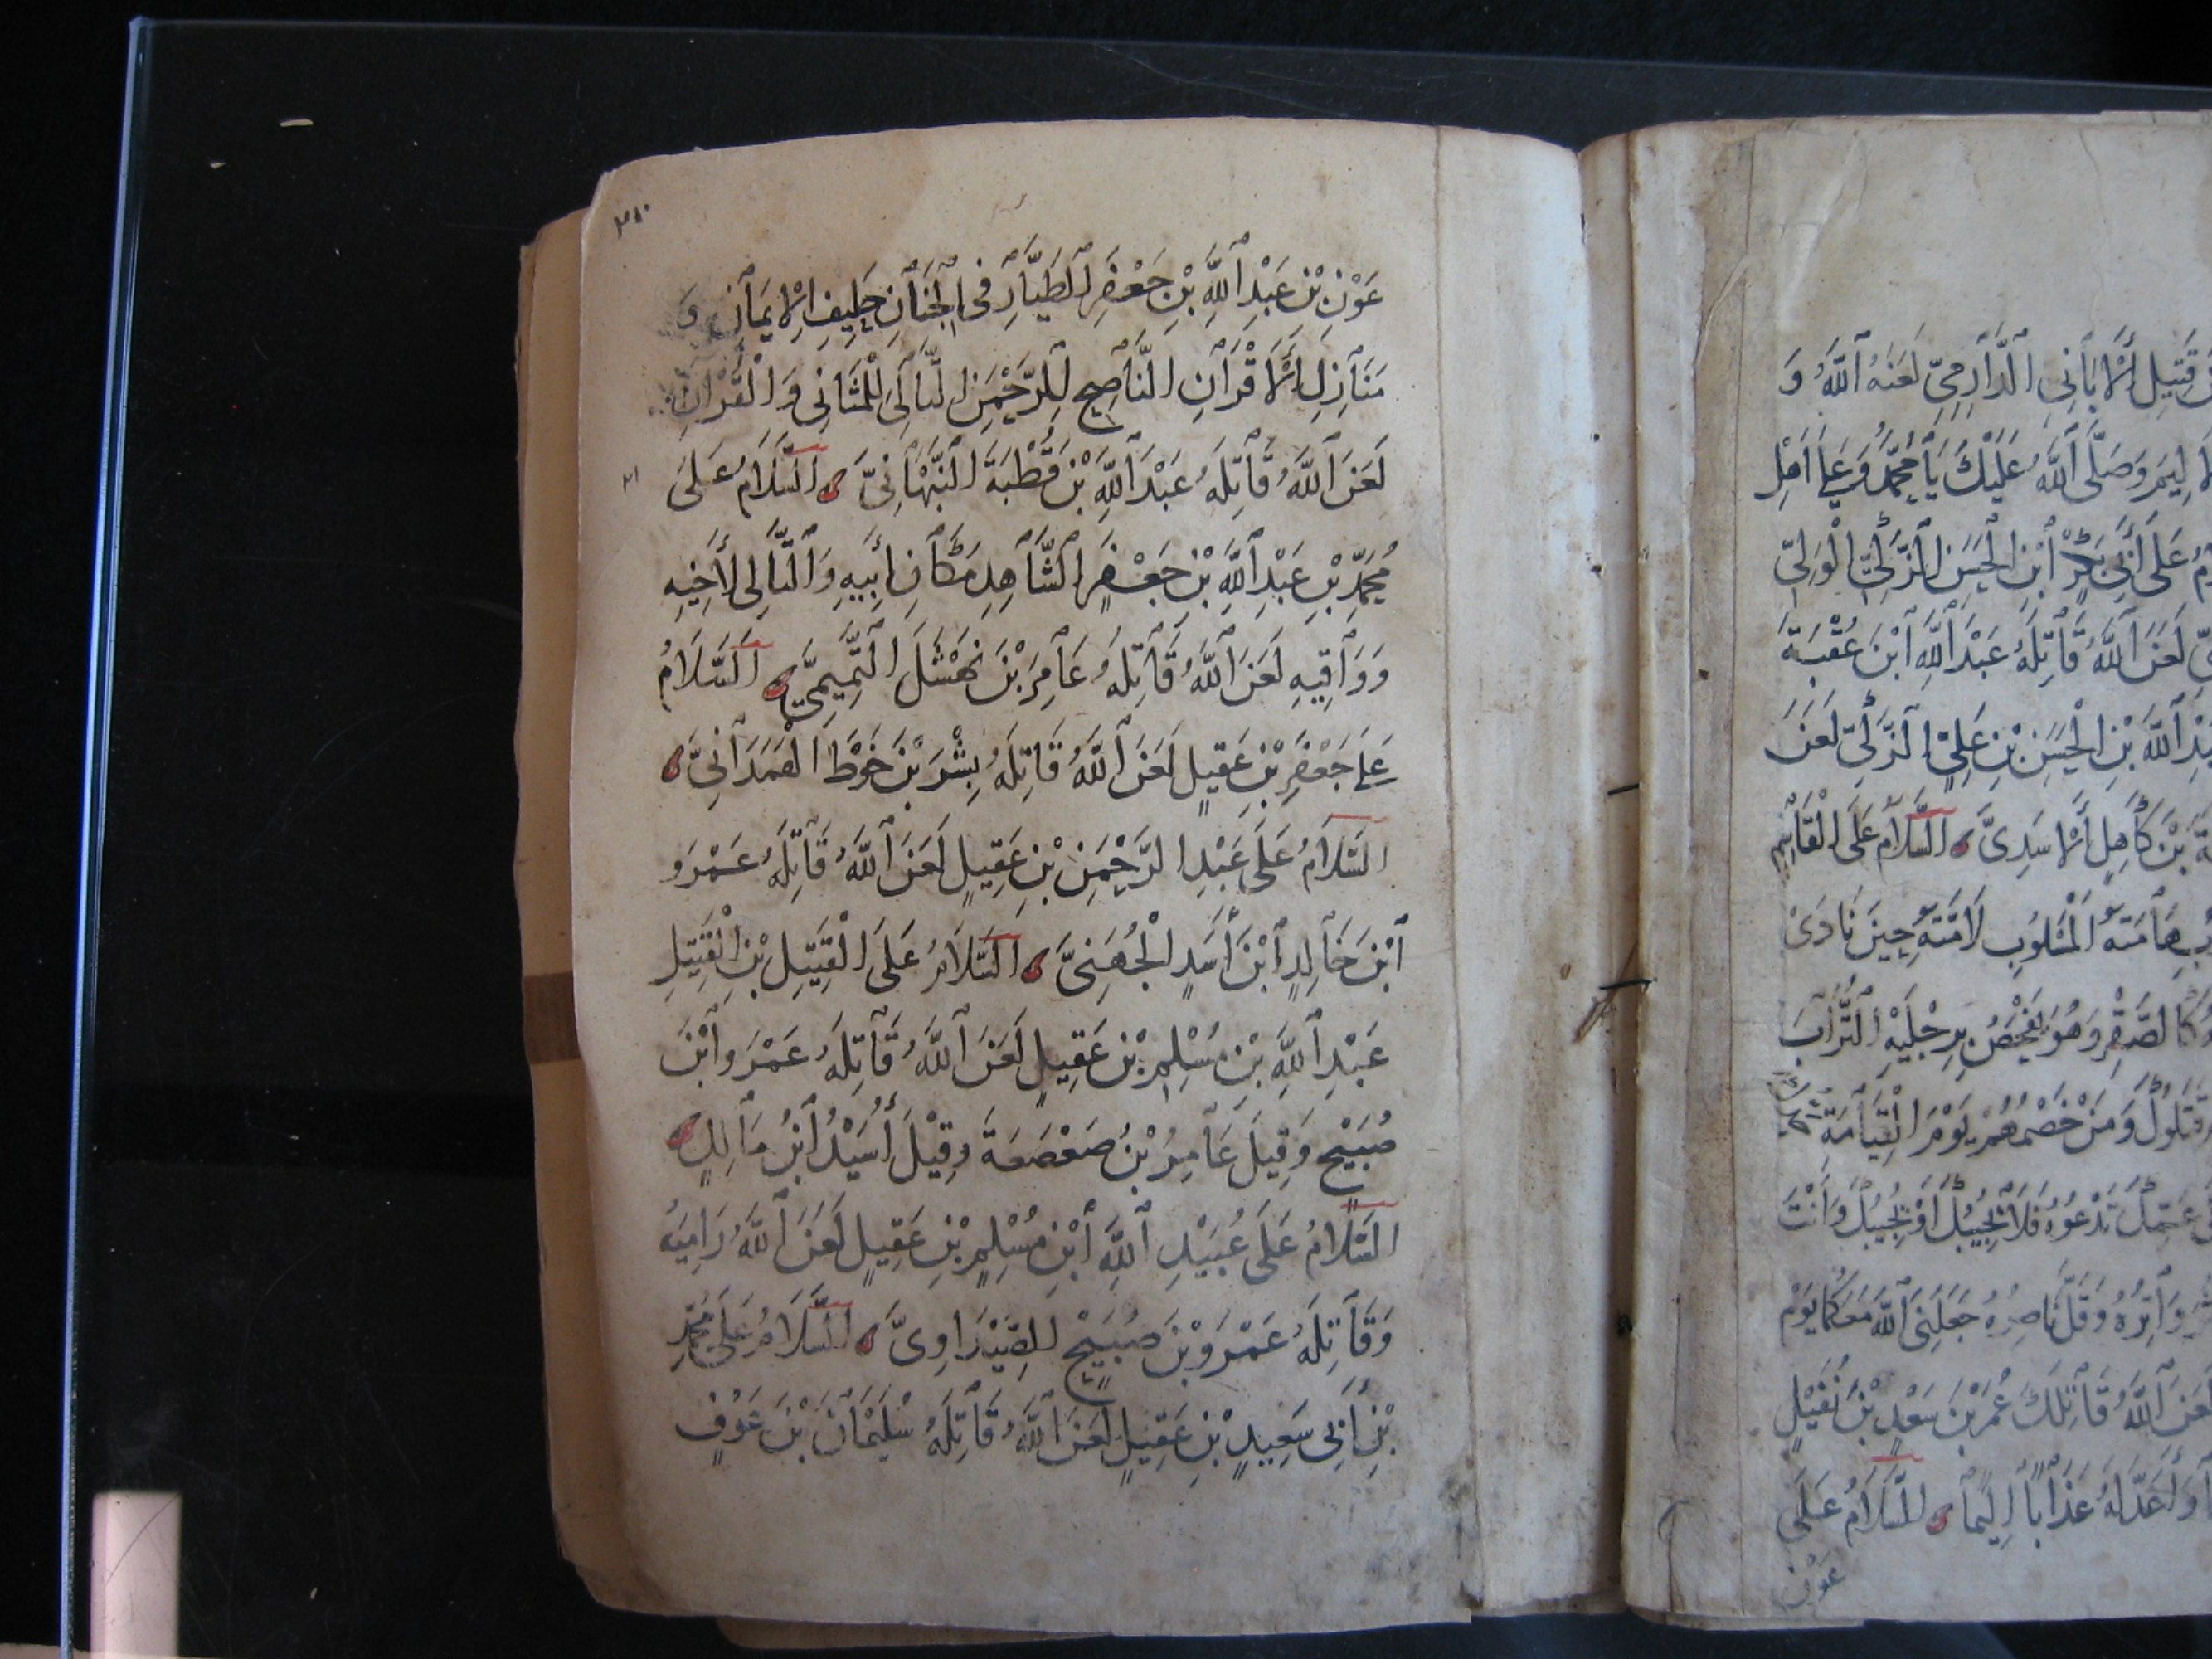 قَتِيلِ الْأَبَانِي الدَّارِمِيِّ لَعَنَهُ اللَّهُ وَ
وَصَلَّى اللَّهُ عَلَيْكَ يَا مُحَمَّدُ وَعَلَى أَهْلِ
عَلَى أَبِي بَكْرِ ابْنِ الْحَسَنِ الزَّكِيِّ الْوَلِيِّ
لَعَنَ اللَّهُ قَاتِلَهُ عَبْدَ اللَّهِ ابْنَ عُقْبَةَ
اللَّهِ بْنِ الْحَسَنِ بْنِ عَلِيٍّ الزَّكِيِّ لَعَنَ
بْنَ كَاهِلٍ الْأَسَدِيَّ السَّلَامُ عَلَى الْقَاسِمِ
هَامَتُهُ الْمَسْلُوبِ لَامَتُهُ حِينَ نَادَى
كَالصَّقْرِ وَهُوَ يَفْحَصُ بِرِجْلَيْهِ التُّرَابَ
وَمَنْ خَصْمُهُمْ يَوْمَ الْقِيَامَةِ
عَمِّكَ تَدْعُوهُ فَلَا يُجِيبُكَ أَوْ يُجِيبُكَ وَأَنْتَ
وَاتِرُهُ وَقَلَّ نَاصِرُهُ جَعَلَنِيَ اللَّهُ مَعَكُمَا يَوْمَ
لَعَنَ اللَّهُ قَاتِلَكَ عُمَرَ بْنَ سَعْدِ بْنِ نُفَيْلٍ
وَأَعَدَّ لَهُ عَذَابًا أَلِيمًا السَّلَامُ عَلَى
عَوْنِ
٢٨٠
عَوْنِ بْنِ عَبْدِ اللَّهِ بْنِ جَعْفَرٍ الطَّيَّارِ فِي الْجِنَانِ حَلِيفِ الْإِيمَانِ وَ
مَنَازِلِ الْأَقْرَانِ النَّاصِحِ لِلرَّحْمَنِ التَّالِي لِلْمَثَانِي وَالْقُرْآنِ
لَعَنَ اللَّهُ قَاتِلَهُ عَبْدَ اللَّهِ بْنَ قُطْبَةَ النَّبْهَانِيَّ السَّلَامُ عَلَى
مُحَمَّدِ بْنِ عَبْدِ اللَّهِ بْنِ جَعْفَرٍ الشَّاهِدِ مَكَانَ أَبِيهِ وَالتَّالِي لِأَخِيهِ
وَوَاقِيهِ لَعَنَ اللَّهُ قَاتِلَهُ عَامِرَ بْنَ نَهْشَلَ التَّمِيمِيَّ السَّلَامُ
عَلَى جَعْفَرِ بْنِ عَقِيلٍ لَعَنَ اللَّهُ قَاتِلَهُ بِشْرَ بْنَ خَوْطٍ الْهَمَدَانِيَّ
السَّلَامُ عَلَى عَبْدِ الرَّحْمَنِ بْنِ عَقِيلٍ لَعَنَ اللَّهُ قَاتِلَهُ عَمْرَو
ابْنَ خَالِدٍ ابْنَ أَسَدٍ الْجُهَنِيَّ السَّلَامُ عَلَى الْقَتِيلِ بْنِ الْقَتِيلِ
عَبْدِ اللَّهِ بْنِ مُسْلِمِ بْنِ عَقِيلٍ لَعَنَ اللَّهُ قَاتِلَهُ عَمْرَو ابْنَ
صُبَيْحٍ وَقِيلَ عَامِرُ بْنُ صَعْصَعَةَ وَقِيْلَ أُسَيْدُ ابْنُ مَالِكٍ
السَّلَامُ عَلَى عُبَيْدِ اللَّهِ ابْنِ مُسْلِمِ بْنِ عَقِيلٍ لَعَنَ اللَّهُ رَامِيَهُ
وَقَاتِلَهُ عَمْرَو بْنَ صُبَيْحٍ الصَّيْدَاوِيَّ السَّلَامُ عَلَى مُحَمَّدِ
بْنِ أَبِي سَعِيدٍ بْنِ عَقِيلٍ لَعَنَ اللَّهُ قَاتِلَهُ سُلَيْمَانَ بْنَ عَوْفٍ